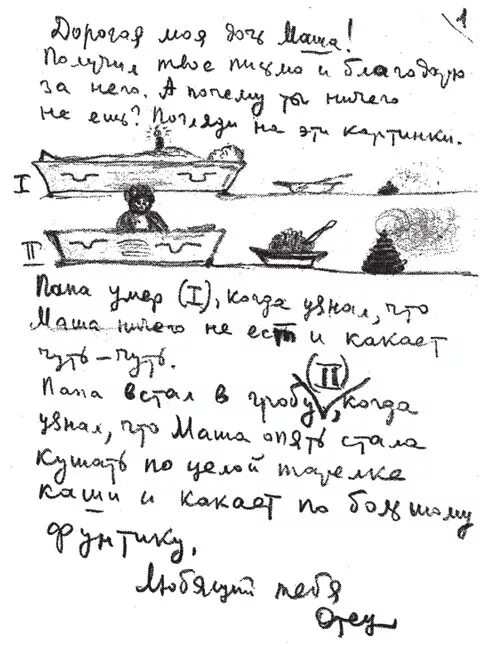 1
Дорогая моя дочь Маша!
Получил твое письмо и благодарю
за него. А почему ты ничего
не ешь? Погляди на эти картинки.
I
II
Папа умер (I), когда узнал, что
Маша ничего не ест и какает
чуть-чуть.
(II)
Папа встал в гробу, когда
узнал, что Маша опять стала
кушать по целой тарелке
каши и какает по большому
фунтику.
Любящий тебя
Отец